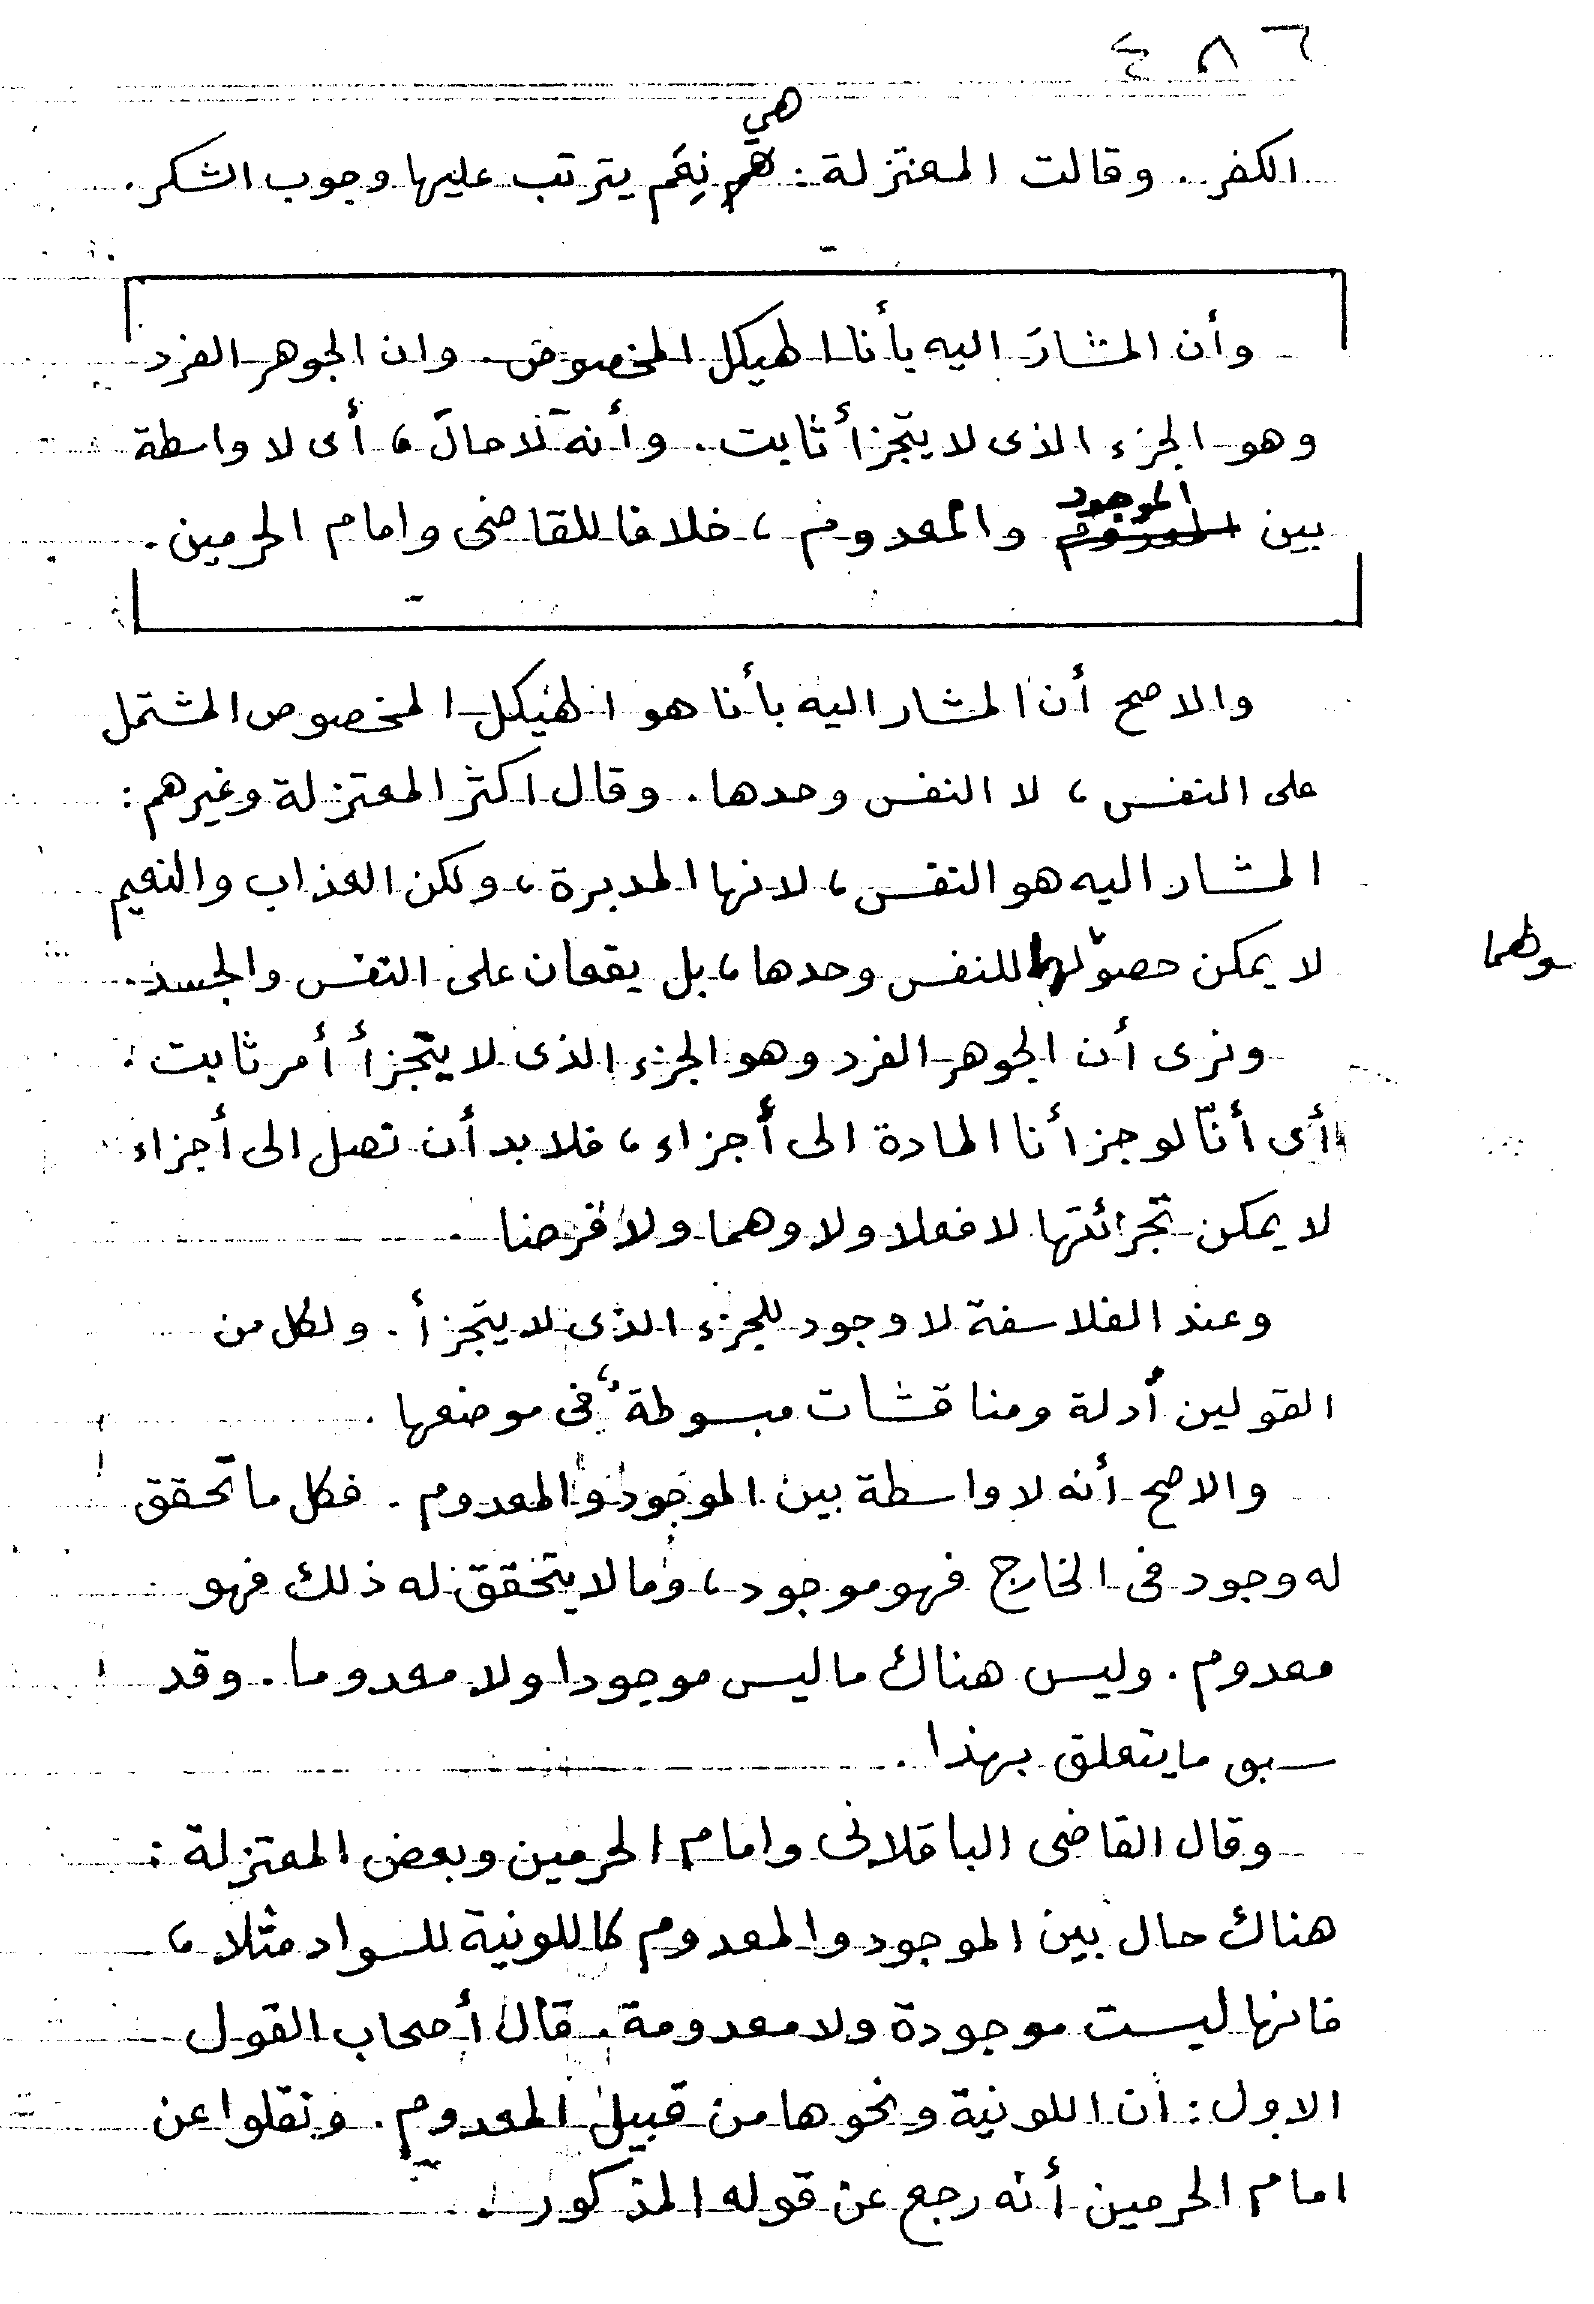 ٤٨٦
هي
الكفر. وقالت المعتزلة: هى نِعَم يترتب عليها وجوب الشكر.
وأن المشارَ اليه بأنا الهيكل المخصوص. وان الجوهر الفرد
وهو الجزء الذى لا يتجزأ ثابت. وأنه لا حالَ، أى لا واسطة
الموجود
بين المعدوم والمعدوم، خلافا للقاضى وامام الحرمين.
والاصح أن المشار اليه بأنا هو الهيكل المخصوص المشتمل
على النفس، لا النفس وحدها. وقال اكثر المعتزلة وغيرهم:
المشار اليه هو النفس، لانها المدبرة، ولكن العذاب والنعيم
لا يمكن حصولهما للنفس وحدها، بل يقعان على النفس والجسد.
ونرى أن الجوهر الفرد وهو الجزء الذى لا يتجزأ أمر ثابت:
أى أنّا لو جزأنا المادة الى أجزاء، فلابد أن تصل الى أجزاء
لا يمكن تجزائتها لا فعلا ولا وهما ولا فرضا.
وعند الفلاسفة لا وجود للجزء الذى لا يتجزأ. ولكل من
القولين أدلة ومناقشات مبسوطة، فى موضعها.
والاصح أنه لا واسطة بين الموجود والمعدوم. فكل ما تحقق
له وجود فى الخارج فهو موجود، وما لا يتحقق له ذلك فهو
معدوم. وليس هناك ما ليس موجودا ولا معدوما. وقد
سبق ما يتعلق بهذا.
وقال القاضى الباقلانى وامام الحرمين وبعض المعتزلة:
هناك حال بين الموجود والمعدوم كاللونية للسواد مثلا،
فانها ليست موجودة ولا معدومة. قال أصحاب القول
الاول: ان اللونية ونحوها من قبيل المعدوم. ونقلوا عن
امام الحرمين أنه رجع عن قوله المذكور.